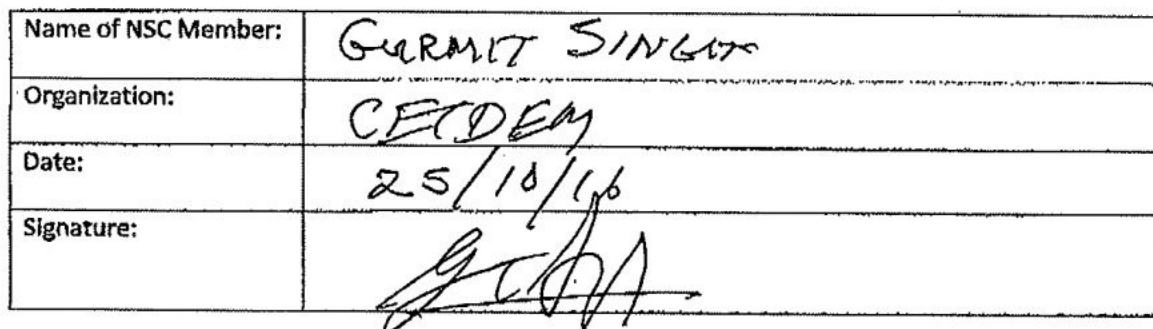 Name of NSC Member: GURMIT SINGH
Organization: CETDEM
Date: 25/10/16
Signature: